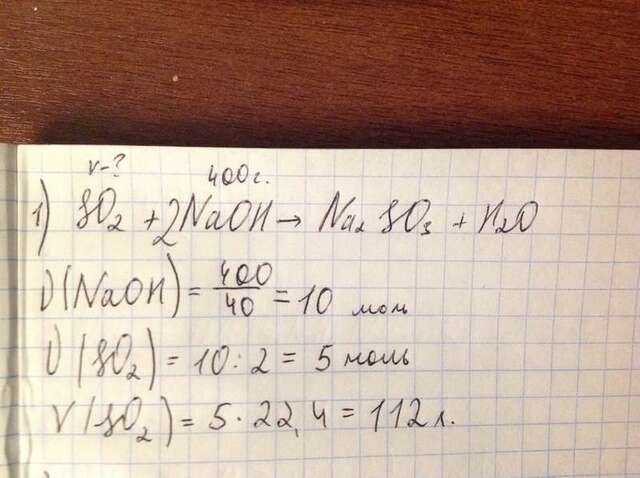 v-? 400г.
1) SO₂ + 2NaOH → Na₂SO₃ + H₂O
ν(NaOH) = 400/40 = 10 моль
ν(SO₂) = 10 : 2 = 5 моль
V(SO₂) = 5 · 22,4 = 112 л.